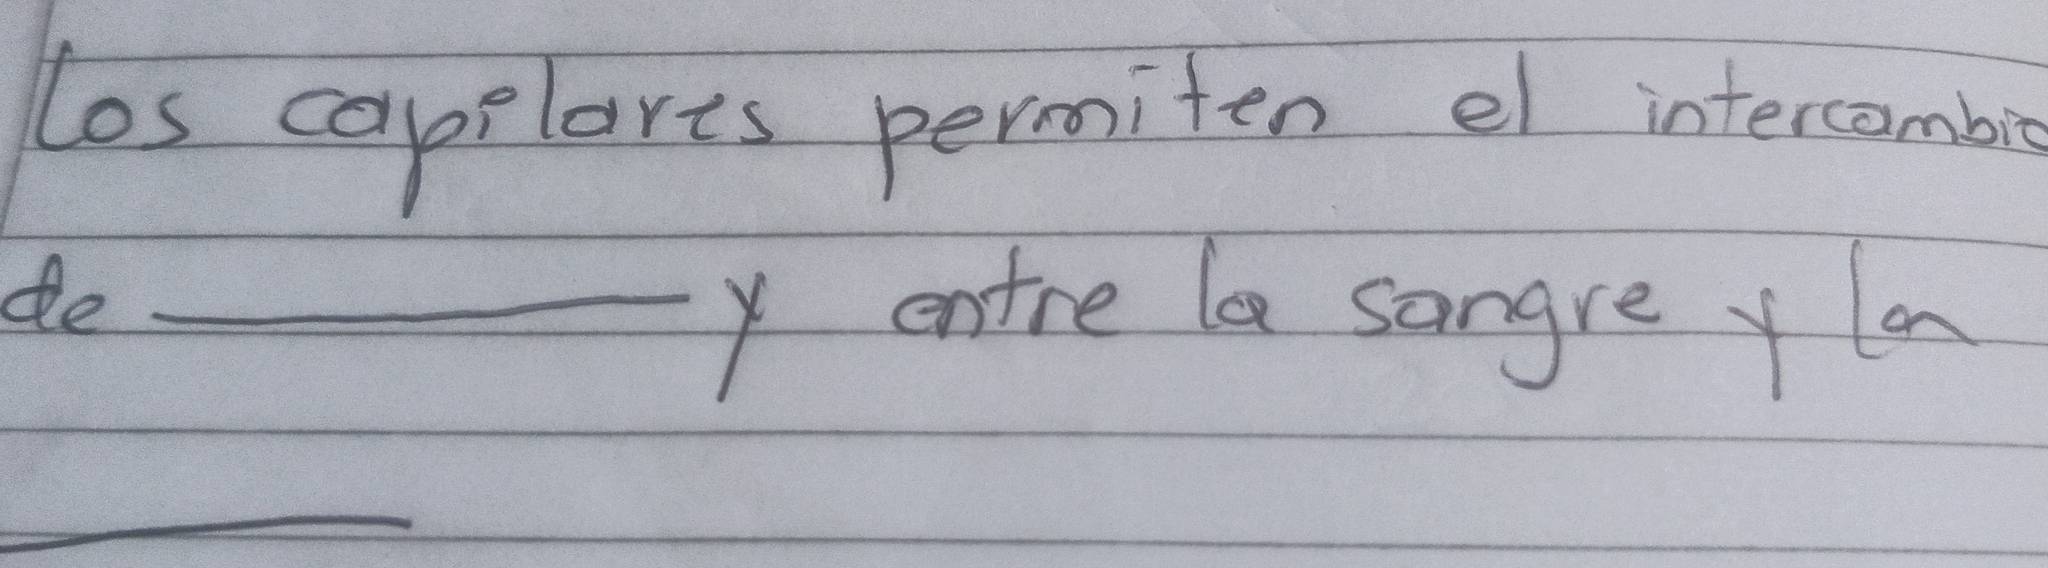 los capilares permiten el intercambio
de ________ y entre la sangre y la
________